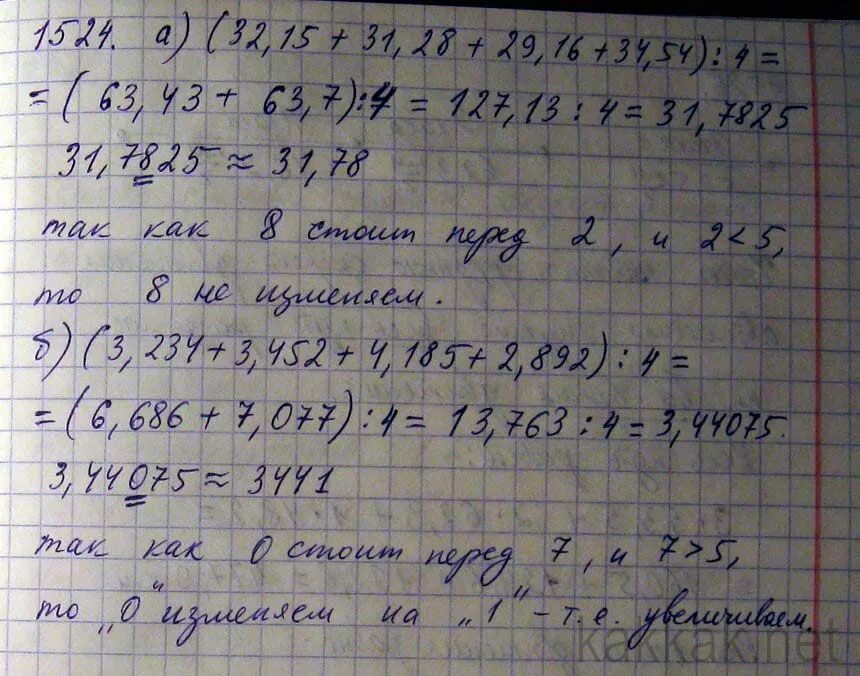 1524. а) (32,15 + 31,28 + 29,16 + 34,54) : 4 =
= (63,43 + 63,7) : 4 = 127,13 : 4 = 31,7825
31,7825 ≈ 31,78
так как 8 стоит перед 2, и 2 < 5,
то 8 не изменяем.
б) (3,234 + 3,452 + 4,185 + 2,892) : 4 =
= (6,686 + 7,077) : 4 = 13,763 : 4 = 3,44075.
3,44075 ≈ 3441
так как 0 стоит перед 7, и 7 > 5,
то „0" изменяем на „1" - т.е. увеличиваем.
kakkak.net